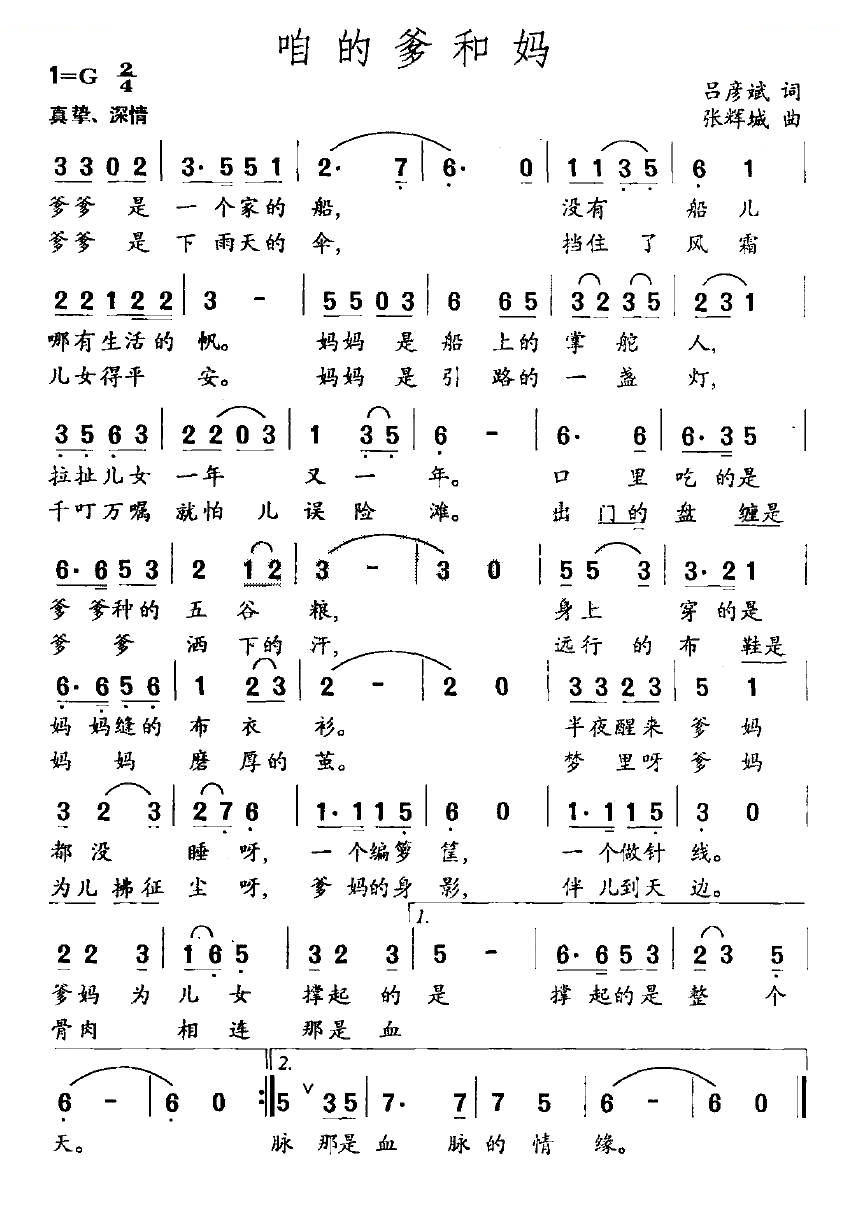 咱的爹和妈
1=G 2/4
吕彦斌 词
真挚、深情
张辉城 曲
3 3 0 2 | 3· 5 5 1 | 2· 7 | 6· 0 | 1 1 3 5 | 6 1
爹爹 是 一 个家的 船, 没有 船 儿
爹爹 是 下 雨天的 伞, 挡住 了 风 霜
2 2 1 2 2 | 3 - | 5 5 0 3 | 6 6 5 | 3 2 3 5 | 2 3 1
哪有生活的 帆。 妈妈 是 船 上的 掌 舵 人,
儿女得平 安。 妈妈 是 引 路的 一 盏 灯,
3 5 6 3 | 2 2 0 3 | 1 3 5 | 6 - | 6· 6 | 6· 3 5
拉扯儿女 一年 又 一 年。 口 里 吃 的是
千叮万嘱 就怕 儿 误 险 滩。 出 门的 盘 缠是
6· 6 5 3 | 2 1 2 | 3 - | 3 0 | 5 5 3 | 3· 2 1
爹 爹种的 五 谷 粮, 身上 穿 的是
爹 爹 洒 下的 汗, 远行 的 布 鞋是
6· 6 5 6 | 1 2 3 | 2 - | 2 0 | 3 3 2 3 | 5 1
妈 妈缝的 布 衣 衫。 半夜醒来 爹 妈
妈 妈 磨 厚的 茧。 梦 里呀 爹 妈
3 2 3 | 2 7 6 | 1· 1 1 5 | 6 0 | 1· 1 1 5 | 3 0
都没 睡 呀, 一 个编箩 筐, 一 个做针 线。
为儿 拂征 尘 呀, 爹 妈的身 影, 伴 儿到天 边。
1.
2 2 3 | 1 6 5 | 3 2 3 | 5 - | 6· 6 5 3 | 2 3 5
爹妈 为 儿 女 撑起 的 是 撑 起的是 整 个
骨肉 相 连 那是 血
2.
6 - | 6 0 :| 5 ∨ 3 5 | 7· 7 | 7 5 | 6 - | 6 0 |
天。 脉 那是 血 脉 的 情 缘。